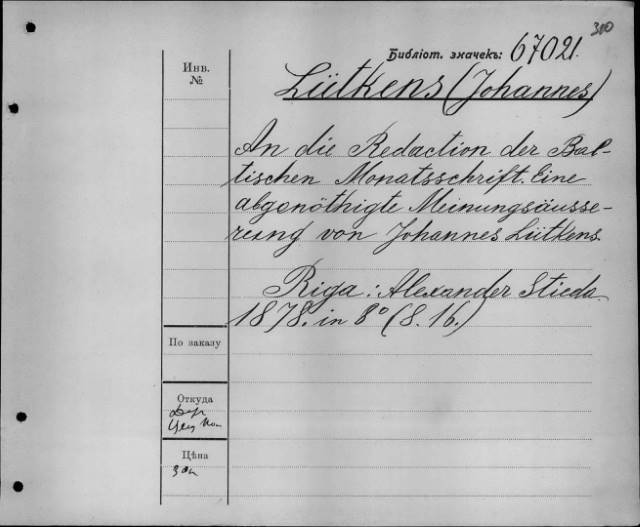 310
Библіот. значекъ: 67021.
Инв.
№
Lütkens (Johannes)
An die Redaction der Bal-
tischen Monatsschrift. Eine
abgenöthigte Meinungsäusse-
rung von Johannes Lütkens.
Riga: Alexander Stieda.
1878. in 8° (S. 16.)
По заказу
Откуда
Цѣна